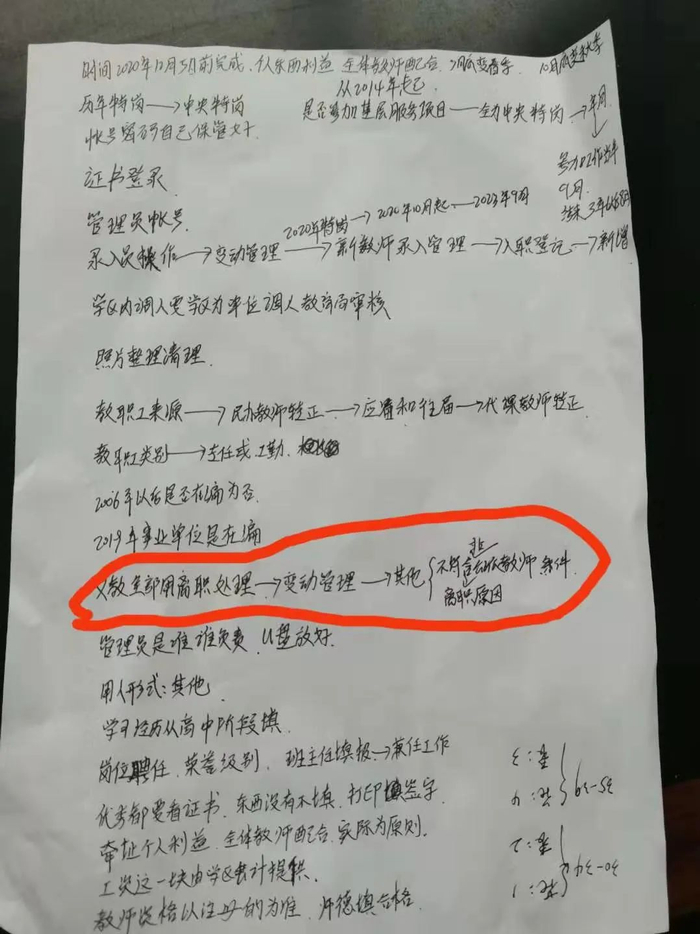 时间2020年10月5日前完成,个人东西利益 全体教师配合,
从2014年起
历年特岗→中央特岗 是否参加基层服务项目——全为中央特岗→年月
帐号密码自己保管好.
参加工作当年
9月.
证书登录
管理员帐号
2020年特岗→2020年10月起→2023年9月
录入员操作→变动管理→新教师录入管理→入职登记→新增
学区内调入要学区为单位调入教育局审核
照片整理清理.
教职工来源→民办教师转正→应届和往届→代课教师转正
教职工类别→专任或工勤.
2006年以后是否在编为否.
2019年事业单位是在编
义教全部用离职处理→变动管理→其他{不符合 教师条件
离职原因
管理员是谁谁负责. U盘放好.
用人形式:其他.
学习经历从高中阶段填.
岗位聘任. 荣誉级别. 班主任填报→兼任工作
优秀都要看证书. 东西没有不填. 打印填签字
牵扯个人利益. 全体教师配合. 实际为原则.
工资这一块由学区会计提供.
教师资格以注册的为准. 师德填合格.
30-34
35-39